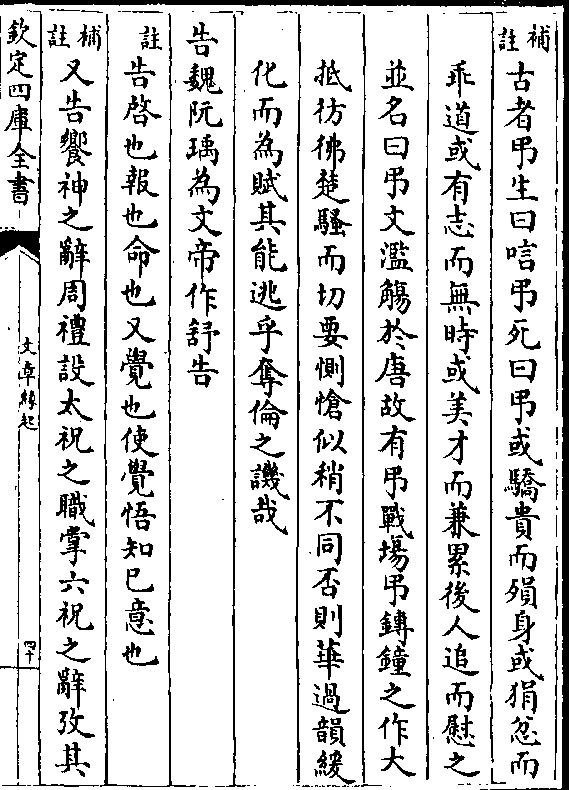 補註 古者弔生曰唁弔死曰弔或驕貴而殞身或狷忿而
乖道或有志而無時或美才而兼累後人追而慰之
並名曰弔文濫觴於唐故有弔戰場弔鏄鐘之作大
抵彷彿楚騷而切要惻愴似稍不同否則華過韻緩
化而為賦其能逃乎奪倫之譏哉
告魏阮瑀為文帝作舒告
註 告啓也報也命也又覺也使覺悟知已意也
補註 又告饗神之辭周禮設太祝之職掌六祝之辭攷其
欽定四庫全書
文章緣起
四十